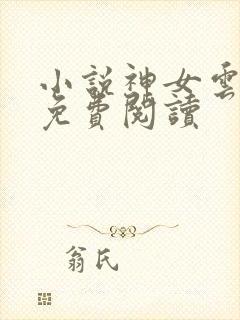 小説神女雲
免費閱讀
翁氏